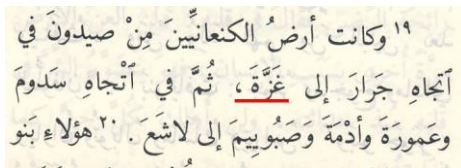 ١٩ وكانت أرضُ الكنعانيِّينَ مِنْ صيدونَ في
اَتجاهِ جَرَارَ إلى غَزَّةَ ، ثُمَّ في اَتْجاهِ سَدُومَ
وعَمورَةَ وأدْمَةَ وَصَبُوييمَ إلى لاشَعَ . ٢٠ هؤلاءِ بَنو